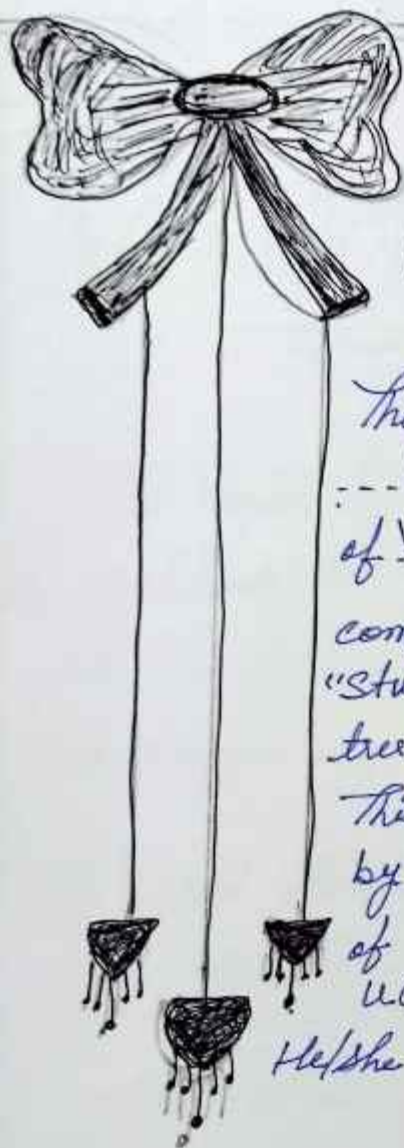 Thi
of
com
"Stu
tree
Thi
by
of
He/she